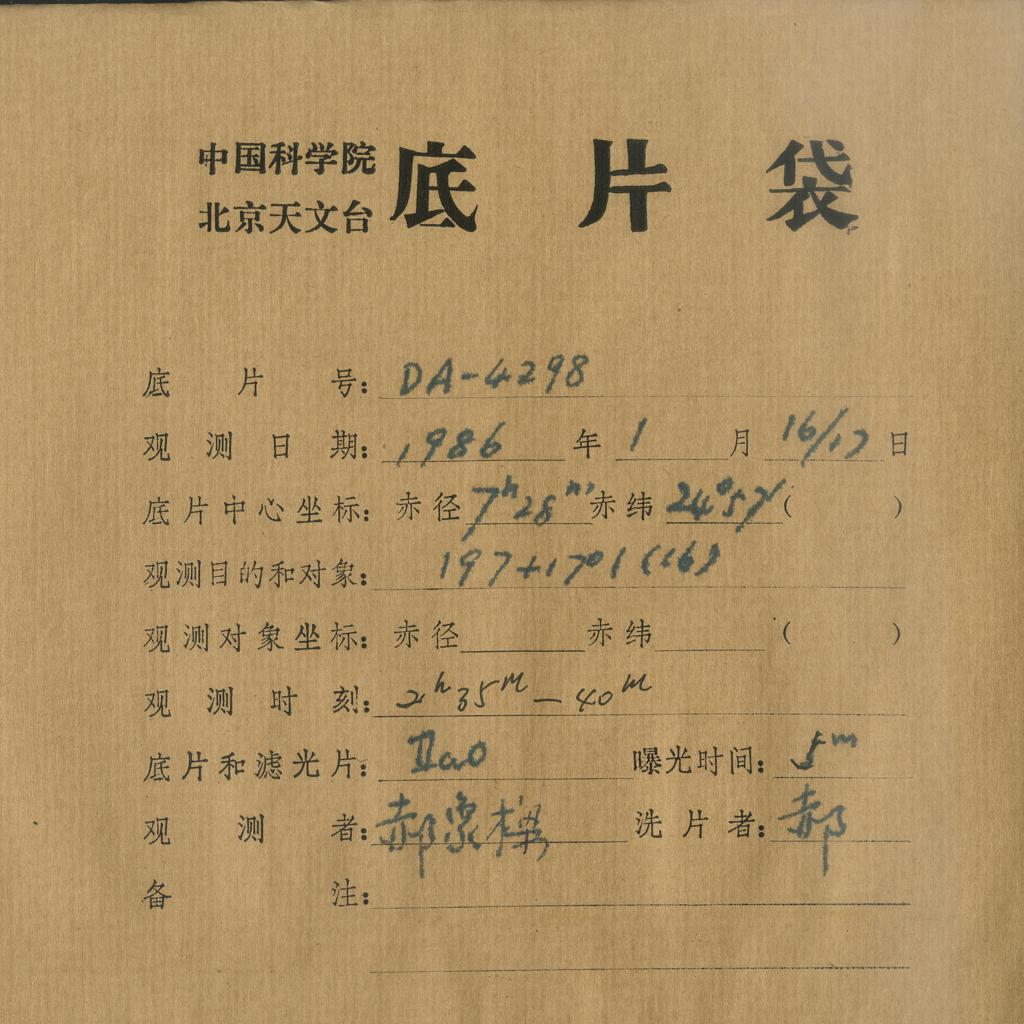 中国科学院
北京天文台
底片袋
底片号：DA-4298
观测日期：1986年1月16/17日
底片中心坐标：赤径7h28m赤纬24°57′(  )
观测目的和对象：197+1701(16)
观测对象坐标：赤径 赤纬 (  )
观测时刻：2h35m—40m
底片和滤光片：IIaO 曝光时间：5m
观测者：郝象樑 洗片者：郝
备注：